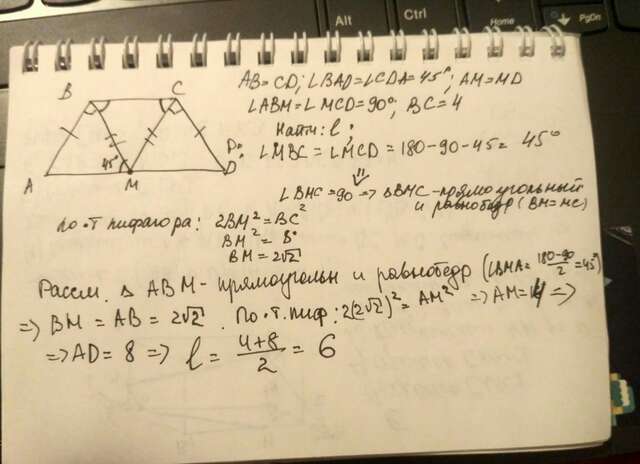 Alt
Ctrl
Home
PgDn
B C
45°
A M D
AB = CD; ∠BAD = ∠CDA = 45°; AM = MD
∠ABM = ∠MCD = 90°, BC = 4
Найти: l;
D:
∠MBC = ∠MCD = 180-90-45 = 45°
⇓
∠BMC = 90 => ΔBMC - прямоугольный
и равнобедр (BM = MC)
по .Т пифагора: 2BM² = BC²
BM² = 8
BM = 2√2
Рассм. Δ ABM - прямоугольн и равнобедр (∠BMA = 180-90/2 = 45°)
=> BM = AB = 2√2. По .т. пиф: 2(2√2)² = AM² => AM = 4 =>
=> AD = 8 => l = 4+8/2 = 6